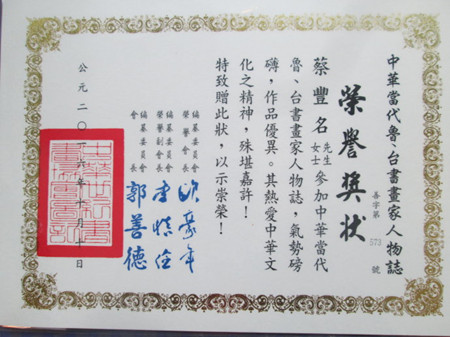 中華當代魯、台書畫家人物誌
榮譽獎狀
善字第573號
蔡豐名先生女士參加中華當代
魯、台書畫家人物誌，氣勢磅
礡，作品優異。其熱愛中華文
化之精神，殊堪嘉許！
特致贈此狀，以示崇榮！
編纂委員會
榮譽會長
編纂委員會
榮譽副會長
編纂委員會
會長 郭善德
公元二〇一六年十月十日